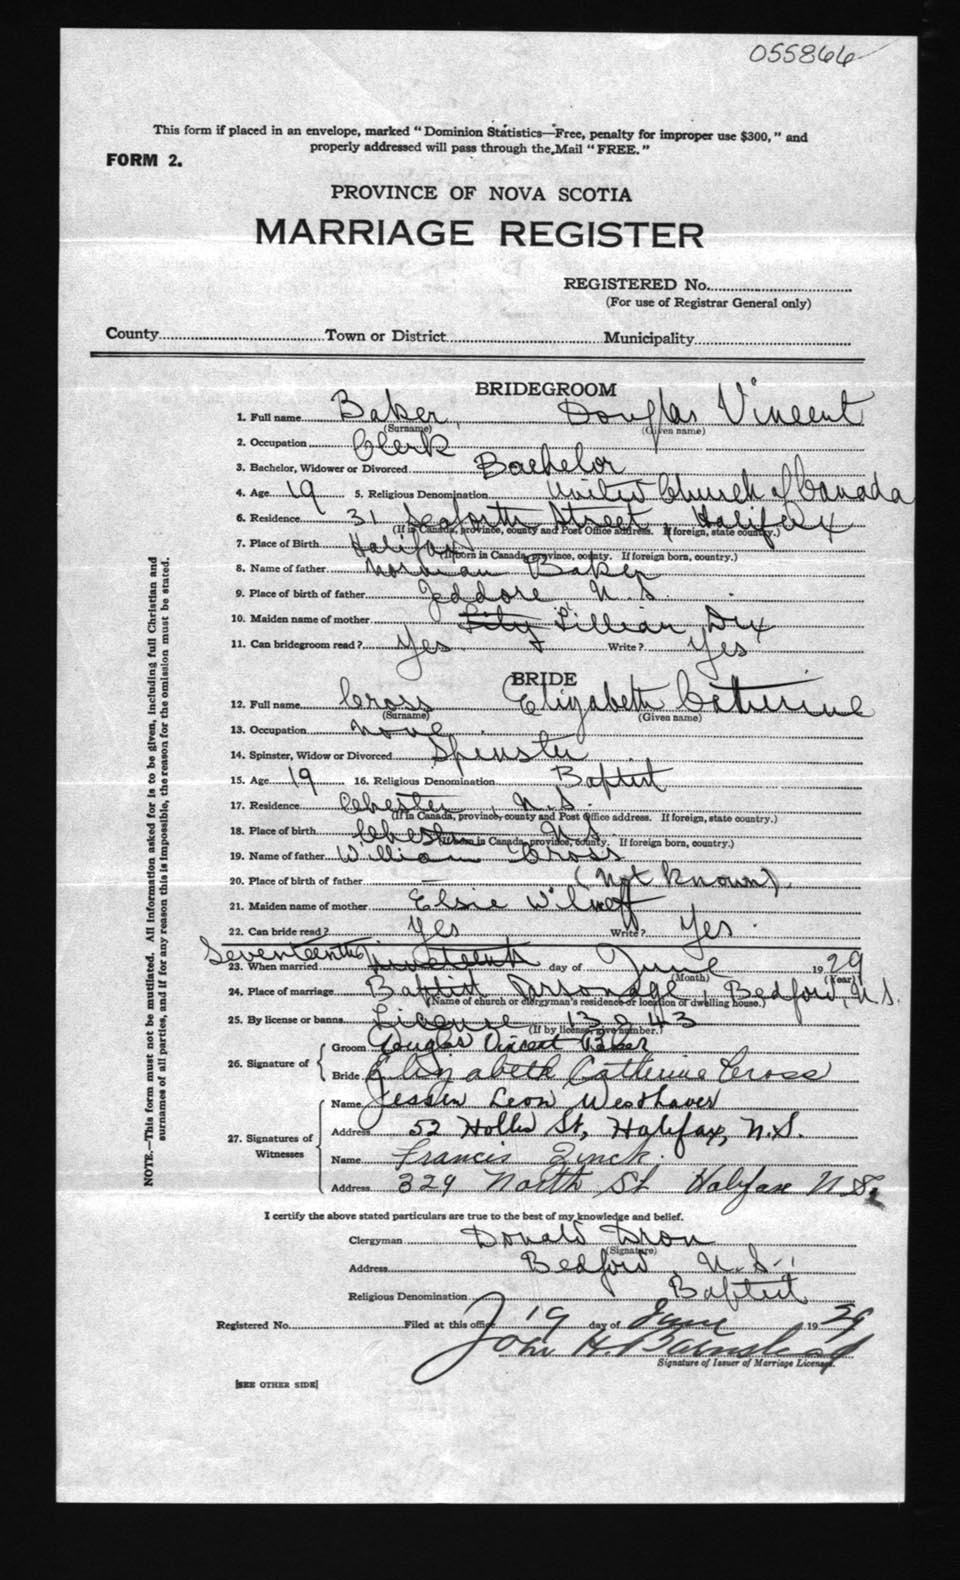 055866
This form if placed in an envelope, marked "Dominion Statistics—Free, penalty for improper use $300," and
properly addressed will pass through the Mail "FREE."
FORM 2.
PROVINCE OF NOVA SCOTIA
MARRIAGE REGISTER
REGISTERED No.
(For use of Registrar General only)
County Town or District Municipality
NOTE.—This form must not be mutilated. All information asked for is to be given, including full Christian and
surnames of all parties, and if for any reason this is impossible, the reason for the omission must be stated.
BRIDEGROOM
1. Full name Baker, Douglas Vincent
(Surname) (Given name)
2. Occupation Clerk
3. Bachelor, Widower or Divorced Bachelor
4. Age 19 5. Religious Denomination United Church of Canada
6. Residence 31 Seaforth Street Halifax
(If in Canada, province, county and Post Office address. If foreign, state country.)
7. Place of Birth Halifax
(If born in Canada, province, county. If foreign born, country.)
8. Name of father Norman Baker
9. Place of birth of father Jeddore N.S.
10. Maiden name of mother Lily Lillian Dix
11. Can bridegroom read? Yes Write? Yes
BRIDE
12. Full name Cross Elizabeth Catherine
(Surname) (Given name)
13. Occupation None
14. Spinster, Widow or Divorced Spinster
15. Age 19 16. Religious Denomination Baptist
17. Residence Chester, N.S.
(If in Canada, province, county and Post Office address. If foreign, state country.)
18. Place of birth Chester N.S.
(If born in Canada, province, county. If foreign born, country.)
19. Name of father William Cross
20. Place of birth of father (Not Known)
21. Maiden name of mother Elsie Wilneff
22. Can bride read? Yes Write? Yes
Seventeenth
23. When married nineteenth day of June 1929
(Month) (Year)
24. Place of marriage Baptist Parsonage, Bedford, N.S.
(Name of church or clergyman's residence or location of dwelling house.)
25. By license or banns License 13243
(If by license, give number.)
26. Signature of
Groom Douglas Vincent Baker
Bride Elizabeth Catherine Cross
27. Signatures of Witnesses
Name Jessen Leon Westhaver
Address 52 Hollis St, Halifax, N.S.
Name Francis Zinck.
Address 329 North St Halifax N.S.
I certify the above stated particulars are true to the best of my knowledge and belief.
Clergyman Donald Dron
(Signature)
Address Bedford, N.S.
Religious Denomination Baptist
Registered No. Filed at this office 19 day of June 1929
John H. Barnstead
Signature of Issuer of Marriage Licenses.
[SEE OTHER SIDE]